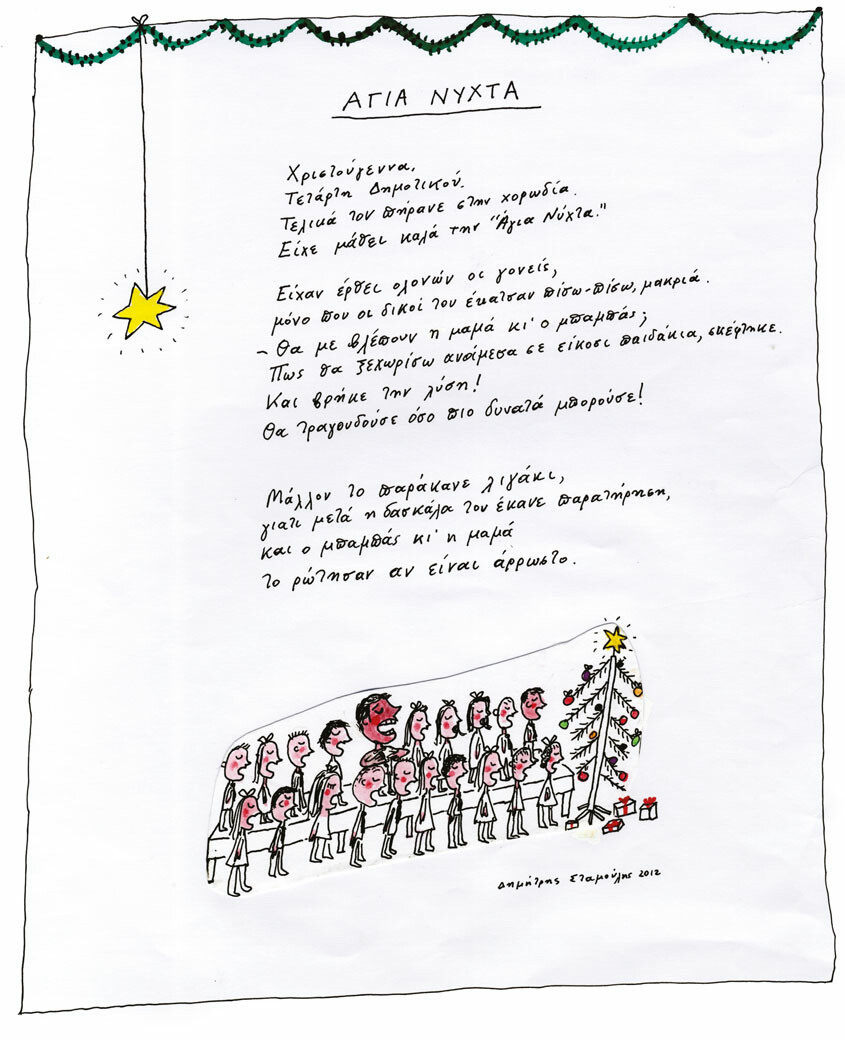 ΑΓΙΑ ΝΥΧΤΑ
Χριστούγεννα,
Τετάρτη Δημοτικού.
Τελικά τον πήρανε στην χορωδία.
Είχε μάθει καλά την "Άγια Νύχτα."
Είχαν έρθει ολονών οι γονείς,
μόνο που οι δικοί του έκατσαν πίσω-πίσω, μακριά.
- Θα με βλέπουν η μαμά κι' ο μπαμπάς;
Πως θα ξεχωρίσω ανάμεσα σε είκοσι παιδάκια, σκέφτηκε.
Και βρήκε την λύση!
Θα τραγουδούσε όσο πιο δυνατά μπορούσε!
Μάλλον το παράκανε λιγάκι,
γιατι μετά η δασκάλα του έκανε παρατήρηση,
και ο μπαμπάς κι' η μαμά
το ρώτησαν αν είναι άρρωστο.
Δημήτρης Σταμούλης 2012